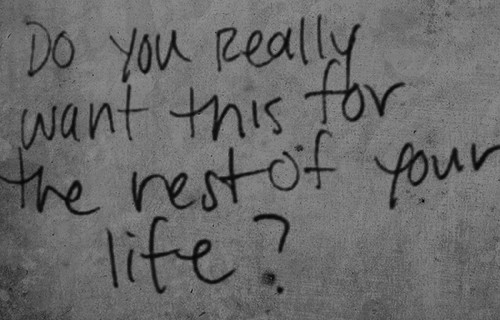 Do you Really
want this for
the rest of your
life?